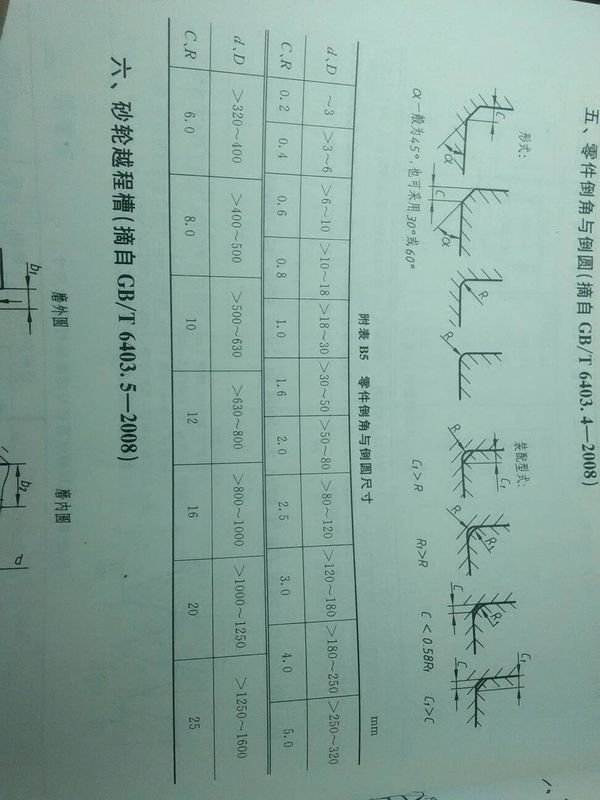 五、零件倒角与倒圆(摘自 GB/T 6403.4—2008)
形式:
装配型式:
C₁ α C α R R R C₁ R R₁ C R₁ C C₁
α一般为45°,也可采用30°或60°
C₁>R R₁>R C<0.58R₁ C₁>C
附表 B5 零件倒角与倒圆尺寸 mm
d、D ~3 >3~6 >6~10 >10~18 >18~30 >30~50 >50~80 >80~120 >120~180 >180~250 >250~320
C、R 0.2 0.4 0.6 0.8 1.0 1.6 2.0 2.5 3.0 4.0 5.0
d、D >320~400 >400~500 >500~630 >630~800 >800~1000 >1000~1250 >1250~1600
C、R 6.0 8.0 10 12 16 20 25
六、砂轮越程槽(摘自 GB/T 6403.5—2008)
磨外圆 磨内圆
b₁ b₂ d